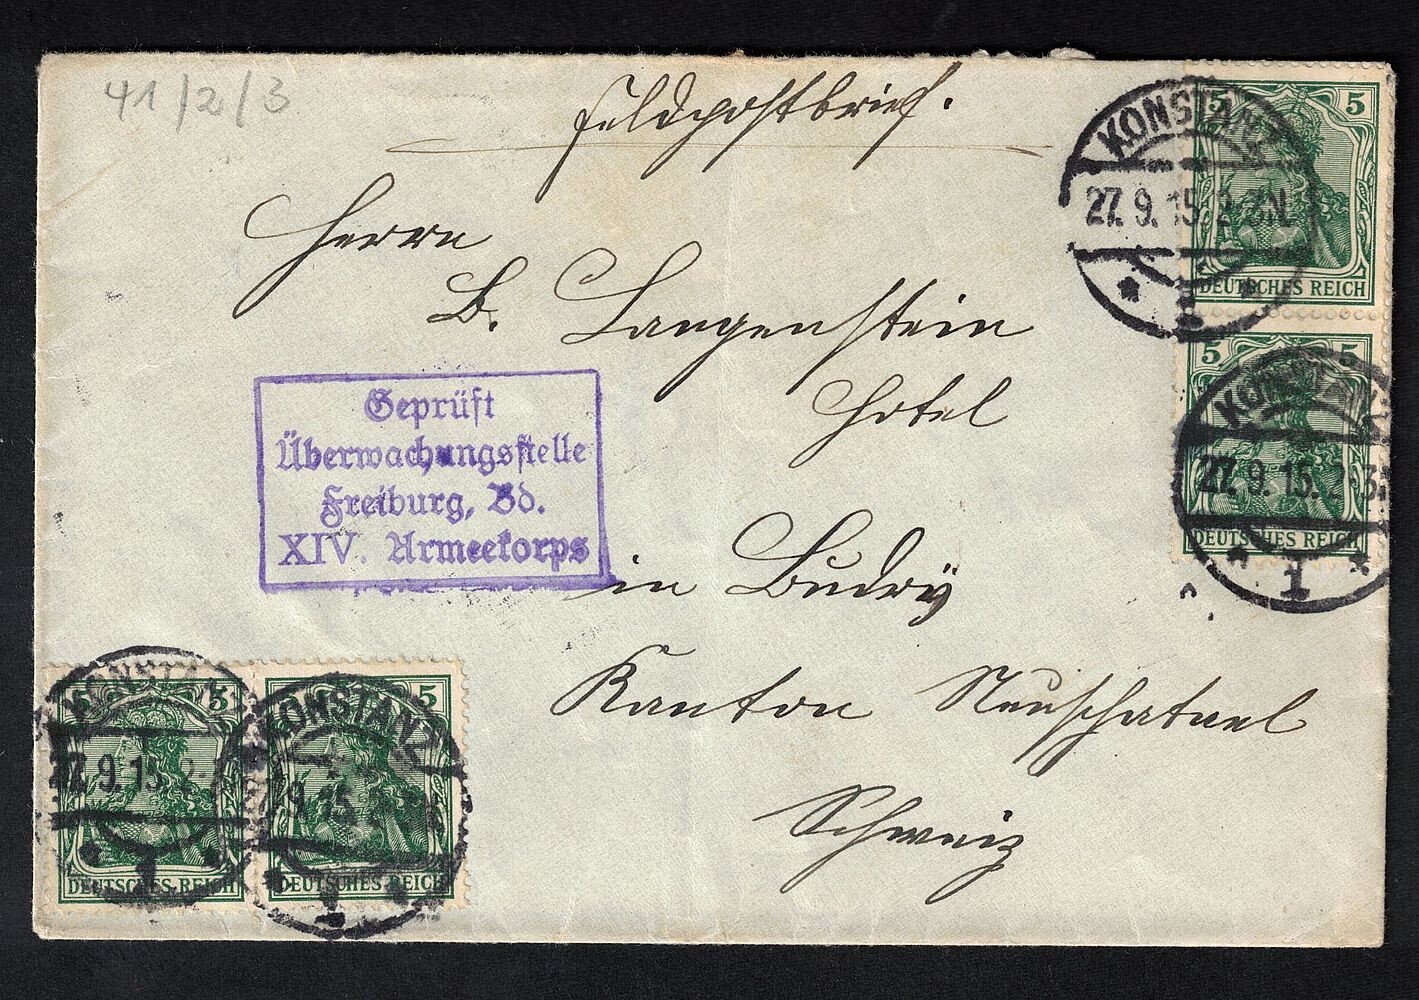 41/2/3
Feldpostbrief.
Herrn
B. Langenstein
Hotel
in Budry
Kanton Neuschatael
Schweiz
Geprüft
Überwachungsstelle
Freiburg, Bd.
XIV. Armeekorps
5 5
DEUTSCHES REICH
KONSTANZ
27.9.15.2-3N.
* 1 *
5 5
DEUTSCHES REICH
KONSTANZ
27.9.15.2-3N
* 1 *
5 5
DEUTSCHES REICH
KONSTANZ
27.9.15.2-
* 1 *
5
DEUTSCHES REICH
KONSTANZ
27.9.15.2
* 1 *